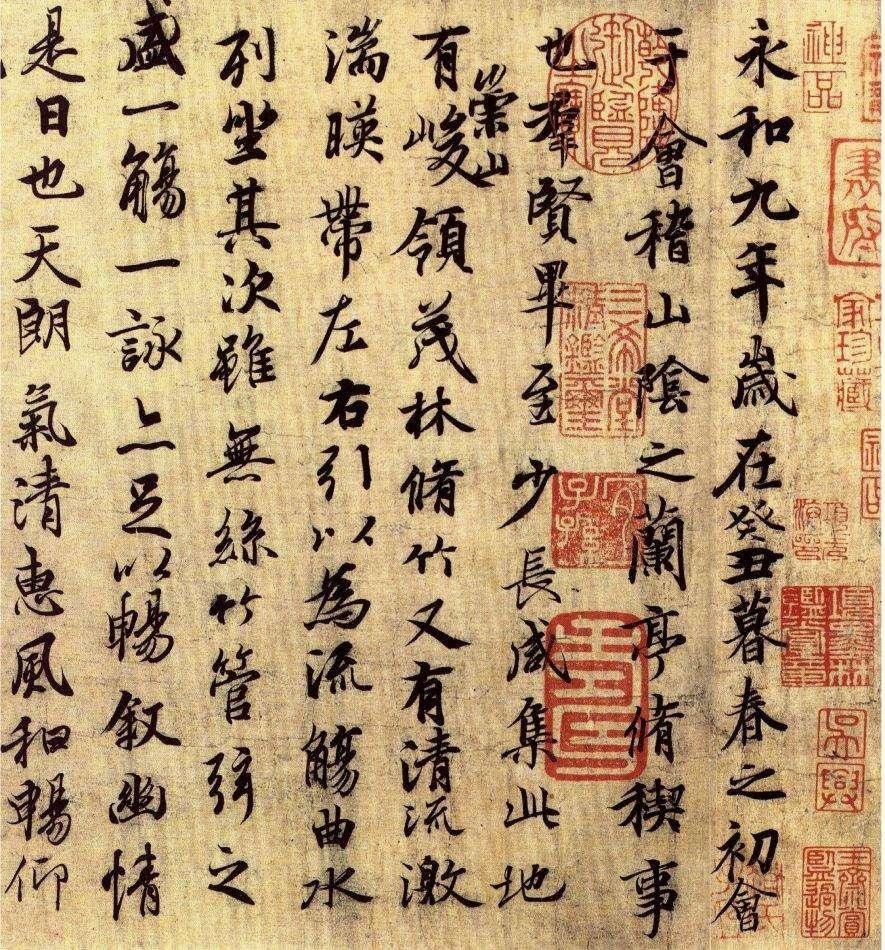 永和九年歲在癸丑暮春之初會
于會稽山陰之蘭亭脩稧事
也羣賢畢至少長咸集此地
有崇山峻領茂林脩竹又有清流激
湍暎帶左右引以為流觴曲水
列坐其次雖無絲竹管弦之
盛一觴一詠亦足以暢敘幽情
是日也天朗氣清惠風和暢仰
神品
書府
家珍藏
三希堂精鑑璽
吳興